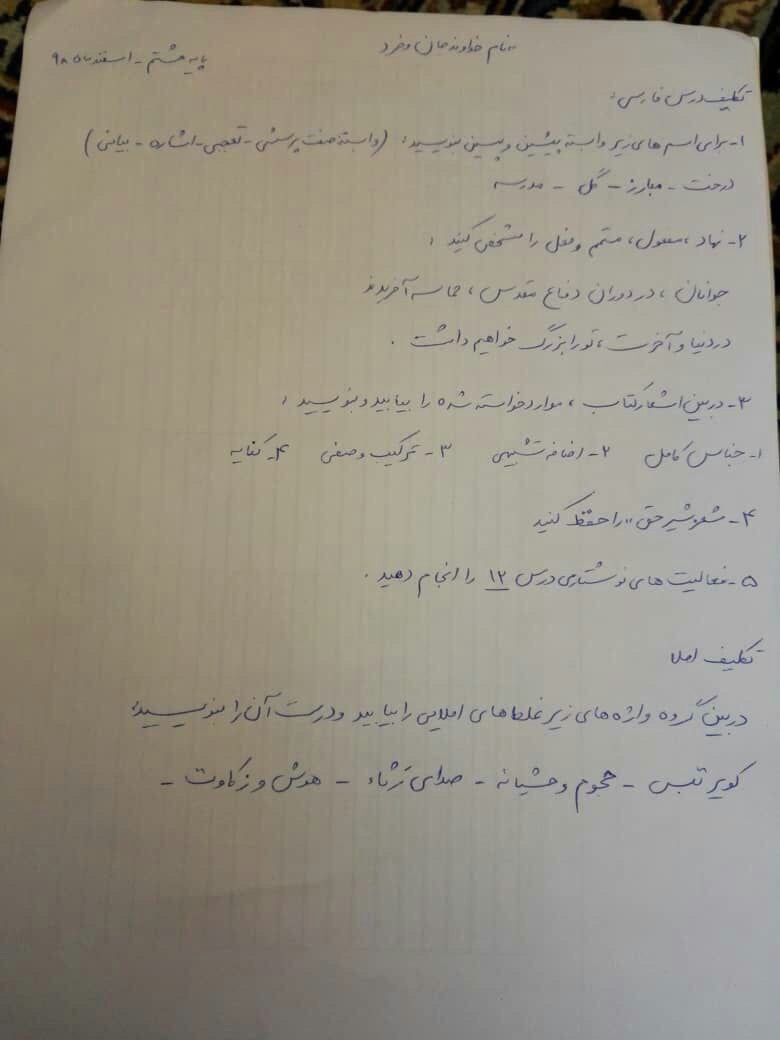 بنام خداوند جان و خرد
پایه هشتم - اسفند ماه ۹۸
تکلیف درس فارسی:
۱- برای اسم های زیر وابسته پیشین و پسین بنویسید: (وابسته صفت پرسشی - تعجبی - اشاره - بیانی)
درخت - مبارز - گل - مدرسه
۲- نهاد، مفعول، متمم و فعل را مشخص کنید:
جوانان، در دوران دفاع مقدس، حماسه آفریدند
در دنیا و آخرت، تو را بزرگ خواهیم داشت.
۳- در بین اشعار کتاب، موارد خواسته شده را بیابید و بنویسید:
۱- جناس کامل ۲- اضافه تشبیهی ۳- ترکیب وصفی ۴- کنایه
۴- شعر «شیر حق» را حفظ کنید
۵- فعالیت های نوشتاری درس ۱۲ را انجام دهید.
تکلیف املا
در بین گروه واژه های زیر غلط های املایی را بیابید و درست آن را بنویسید:
کویر تبس - هجوم وحشیانه - صدای رثاء - هوش و زکاوت -